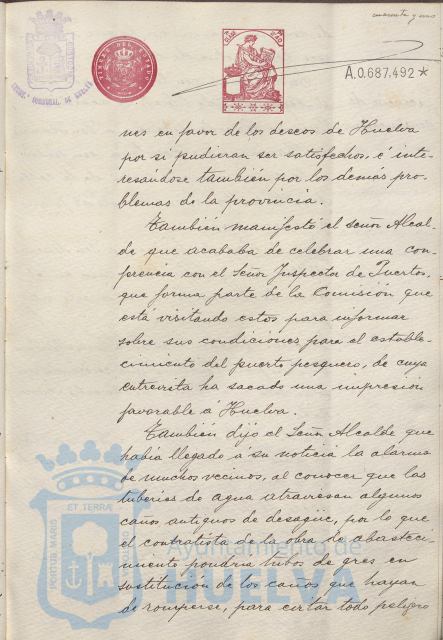 cuarenta y uno
TIMBRE DEL ESTADO
CLASE 8ª
A.0.687.492 *
nes en favor de los deseos de Huelva
por si pudieran ser satisfechos, é inte-
resándose también por los demás pro-
blemas de la provincia.
También manifestó el señor Alcal-
de que acababa de celebrar una con-
ferencia con el Señor Inspector de Puertos,
que forma parte de la Comisión que
está visitando estos para informar
sobre sus condiciones para el estable-
cimiento del puerto pesquero, de cuya
entrevista ha sacado una impresión
favorable á Huelva.
También dijo el Señor Alcalde que
había llegado á su noticia la alarma
de muchos vecinos, al conocer que las
tuberías de agua atraviesan algunos
caños antiguos de desagüe, por lo que
el contratista de la obra de abasteci-
miento pondría tubos de gres en
sustitución de los caños que hayan
de romperse, para evitar todo peligro
PORTUS MARIS ET TERRÆ
Ayuntamiento de
HUELVA